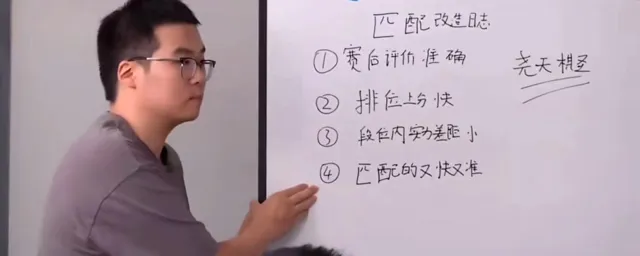 匹配改造日志
① 赛后评价准确
尧天棋
② 排位上分快
③ 段位内实力差距小
④ 匹配的又快又准